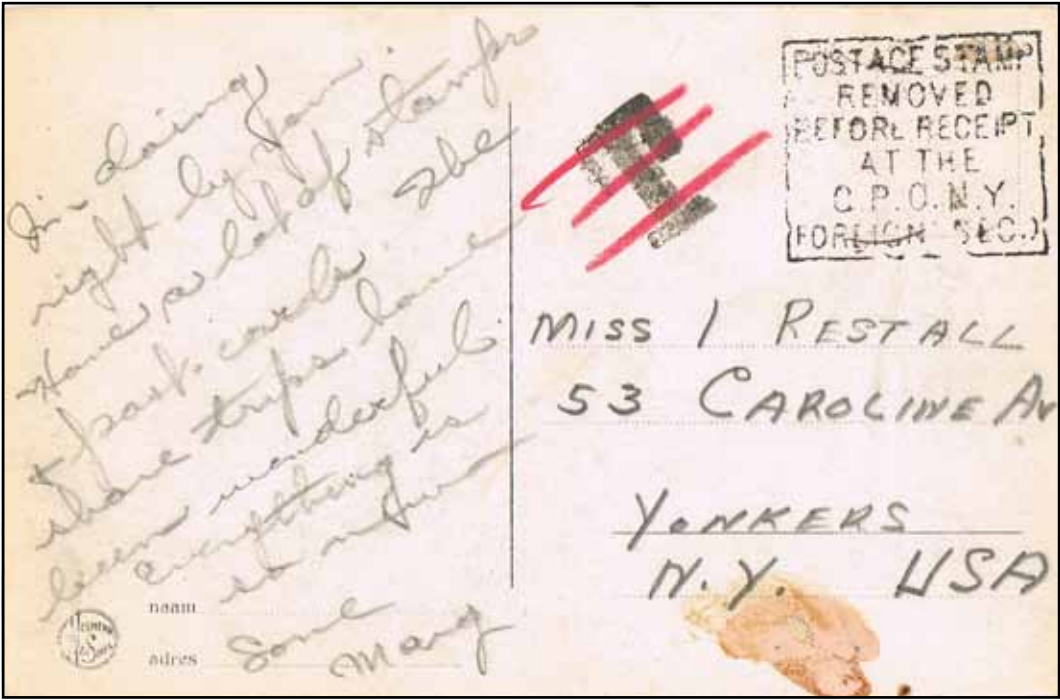 I'm doing
right by you.
Have a lot of stamps
& post. cards The
shore trips have
been wonderful.
everything is
so
Love
Marg
naam
adres
POSTAGE STAMP
REMOVED
BEFORE RECEIPT
AT THE
G.P.O.N.Y.
(FOREIGN SEC.)
MISS I RESTALL
53 CAROLINE AV
YONKERS
N.Y. USA